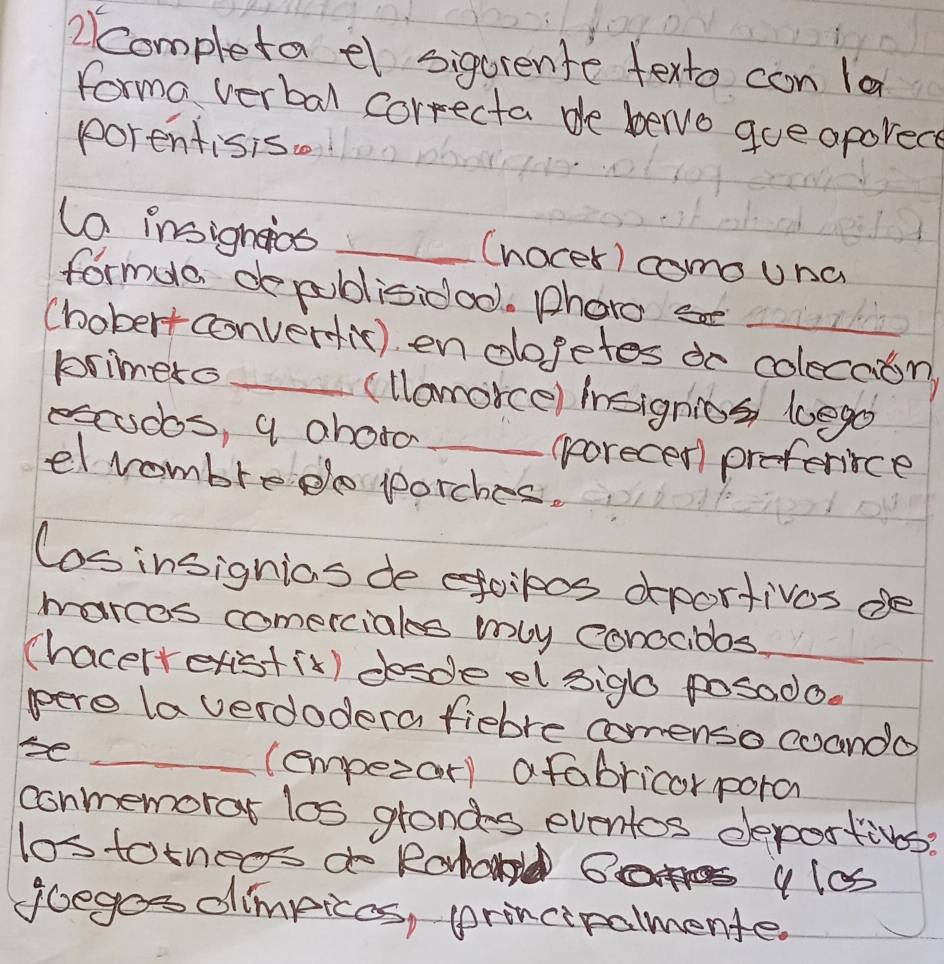 2) Completa el siguiente texto con la
forma verbal correcta de bervo que aparece
parentisis.
La insignias ______ (nacer) como una
fórmula de publisidad. Phara ______
(haber+convertir) en ologetos de colección,
primero ______ (llamarce) insignias luego
escudos, y ahora ______ (parecer) preferirce
el nombre de parches.
Las insignias de equipos deportivos de
marcas comerciales muy conocidas ______
(hacer+existir) desde el siglo pasado.
pero la verdadera fiebre comenso cuando
se ______ (empezar) a fabricar para
conmemorar los grandes eventos deportivos:
los torneos de y los
juegos olímpicos, principalmente.